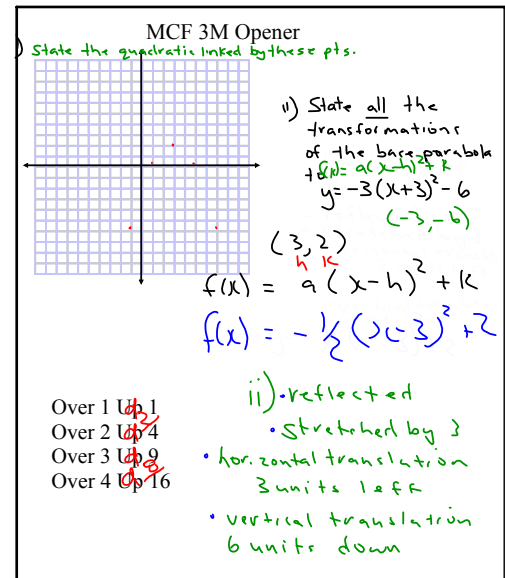 MCF 3M Opener
) State the quadratic linked by these pts.
ii) State all the
transformations
of the base parabola
to
f(x) = a(x-h)² + k
y = -3(x+3)² - 6
(-3, -6)
(3, 2)
h k
f(x) = a(x-h)² + k
f(x) = -1/2(x-3)² + 2
Over 1 Up 1
Over 2 Up 4
Over 3 Up 9
Over 4 Up 16
ii) • reflected
• stretched by 3
• horizontal translation
3 units left
• vertical translation
6 units down